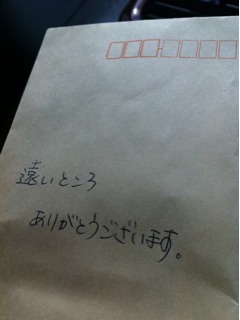 遠いところ
ありがとうございます。